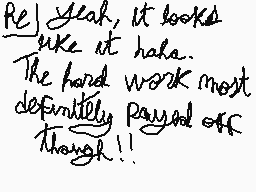 Re] Yeah, it looks
like it haha.
The hard work most
definitelly payed off
though!!